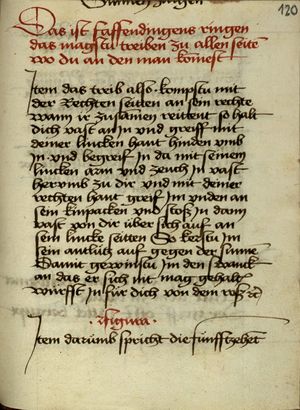 120
Das ist faffendingens ringen
das magstu treiben zu allen seitē
wo du an den man komest
Item das treib also kompstu mit
der Rechten seitten an sein rechte
wann ir zusamen reittent so halt
dich vast an In vnd greiff mit
deiner lincken hant hinden vmb
In vnd begreif In da mit seinem
lincken arm vnd zeuch In vast
herumb zu dir vnd mit deiner
rechten hant greif Im vnden an
sein kinpacken vnd stoß In dann
vast von dir über sich auf an
sein lincke seitten So kerstu Im
sein antlutz auf gegen der Sunnē
Damit gewinstu Im den schwanck
an das er sich nit mag gehaltn̄
würffst In für dich von dem roß ꝛc
· figura ·
Item darumb spricht die fünffzehēt